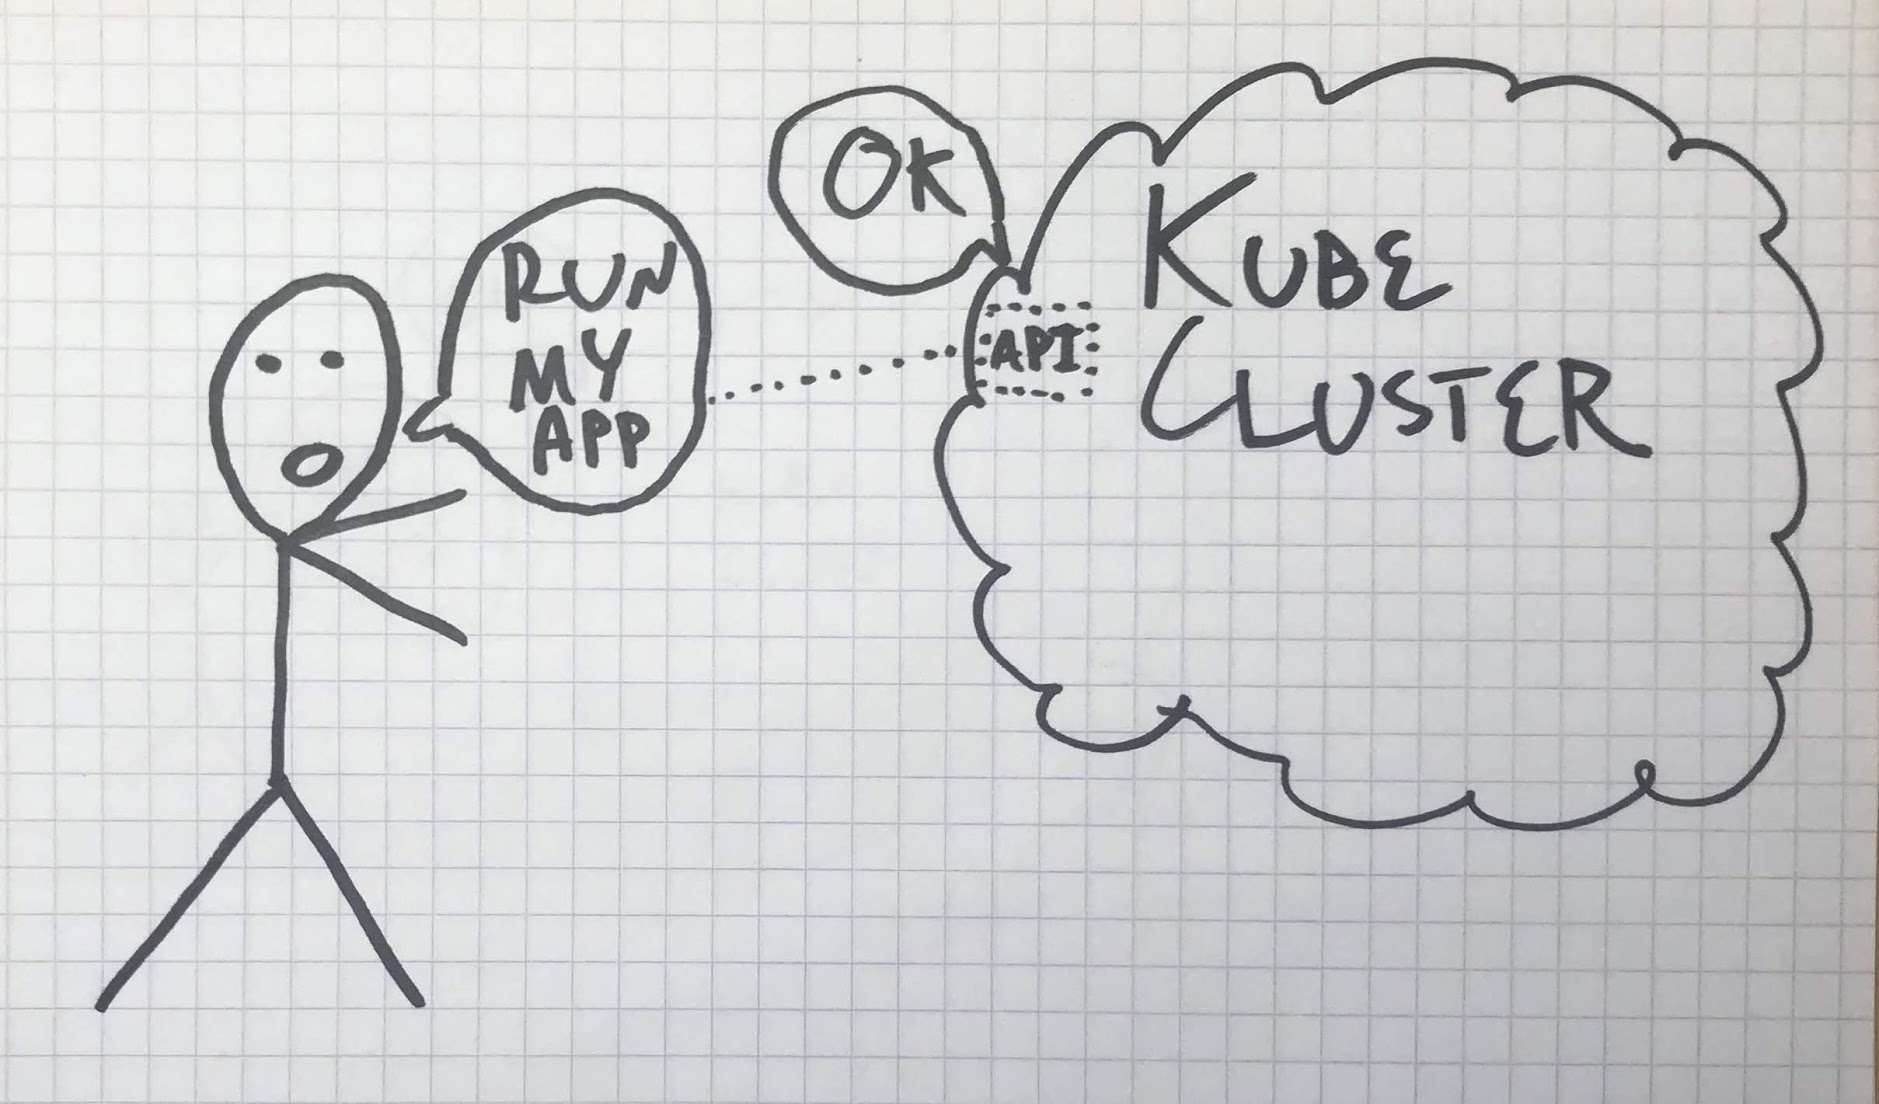 RUN
MY
APP
OK
API
KUBE
CLUSTER